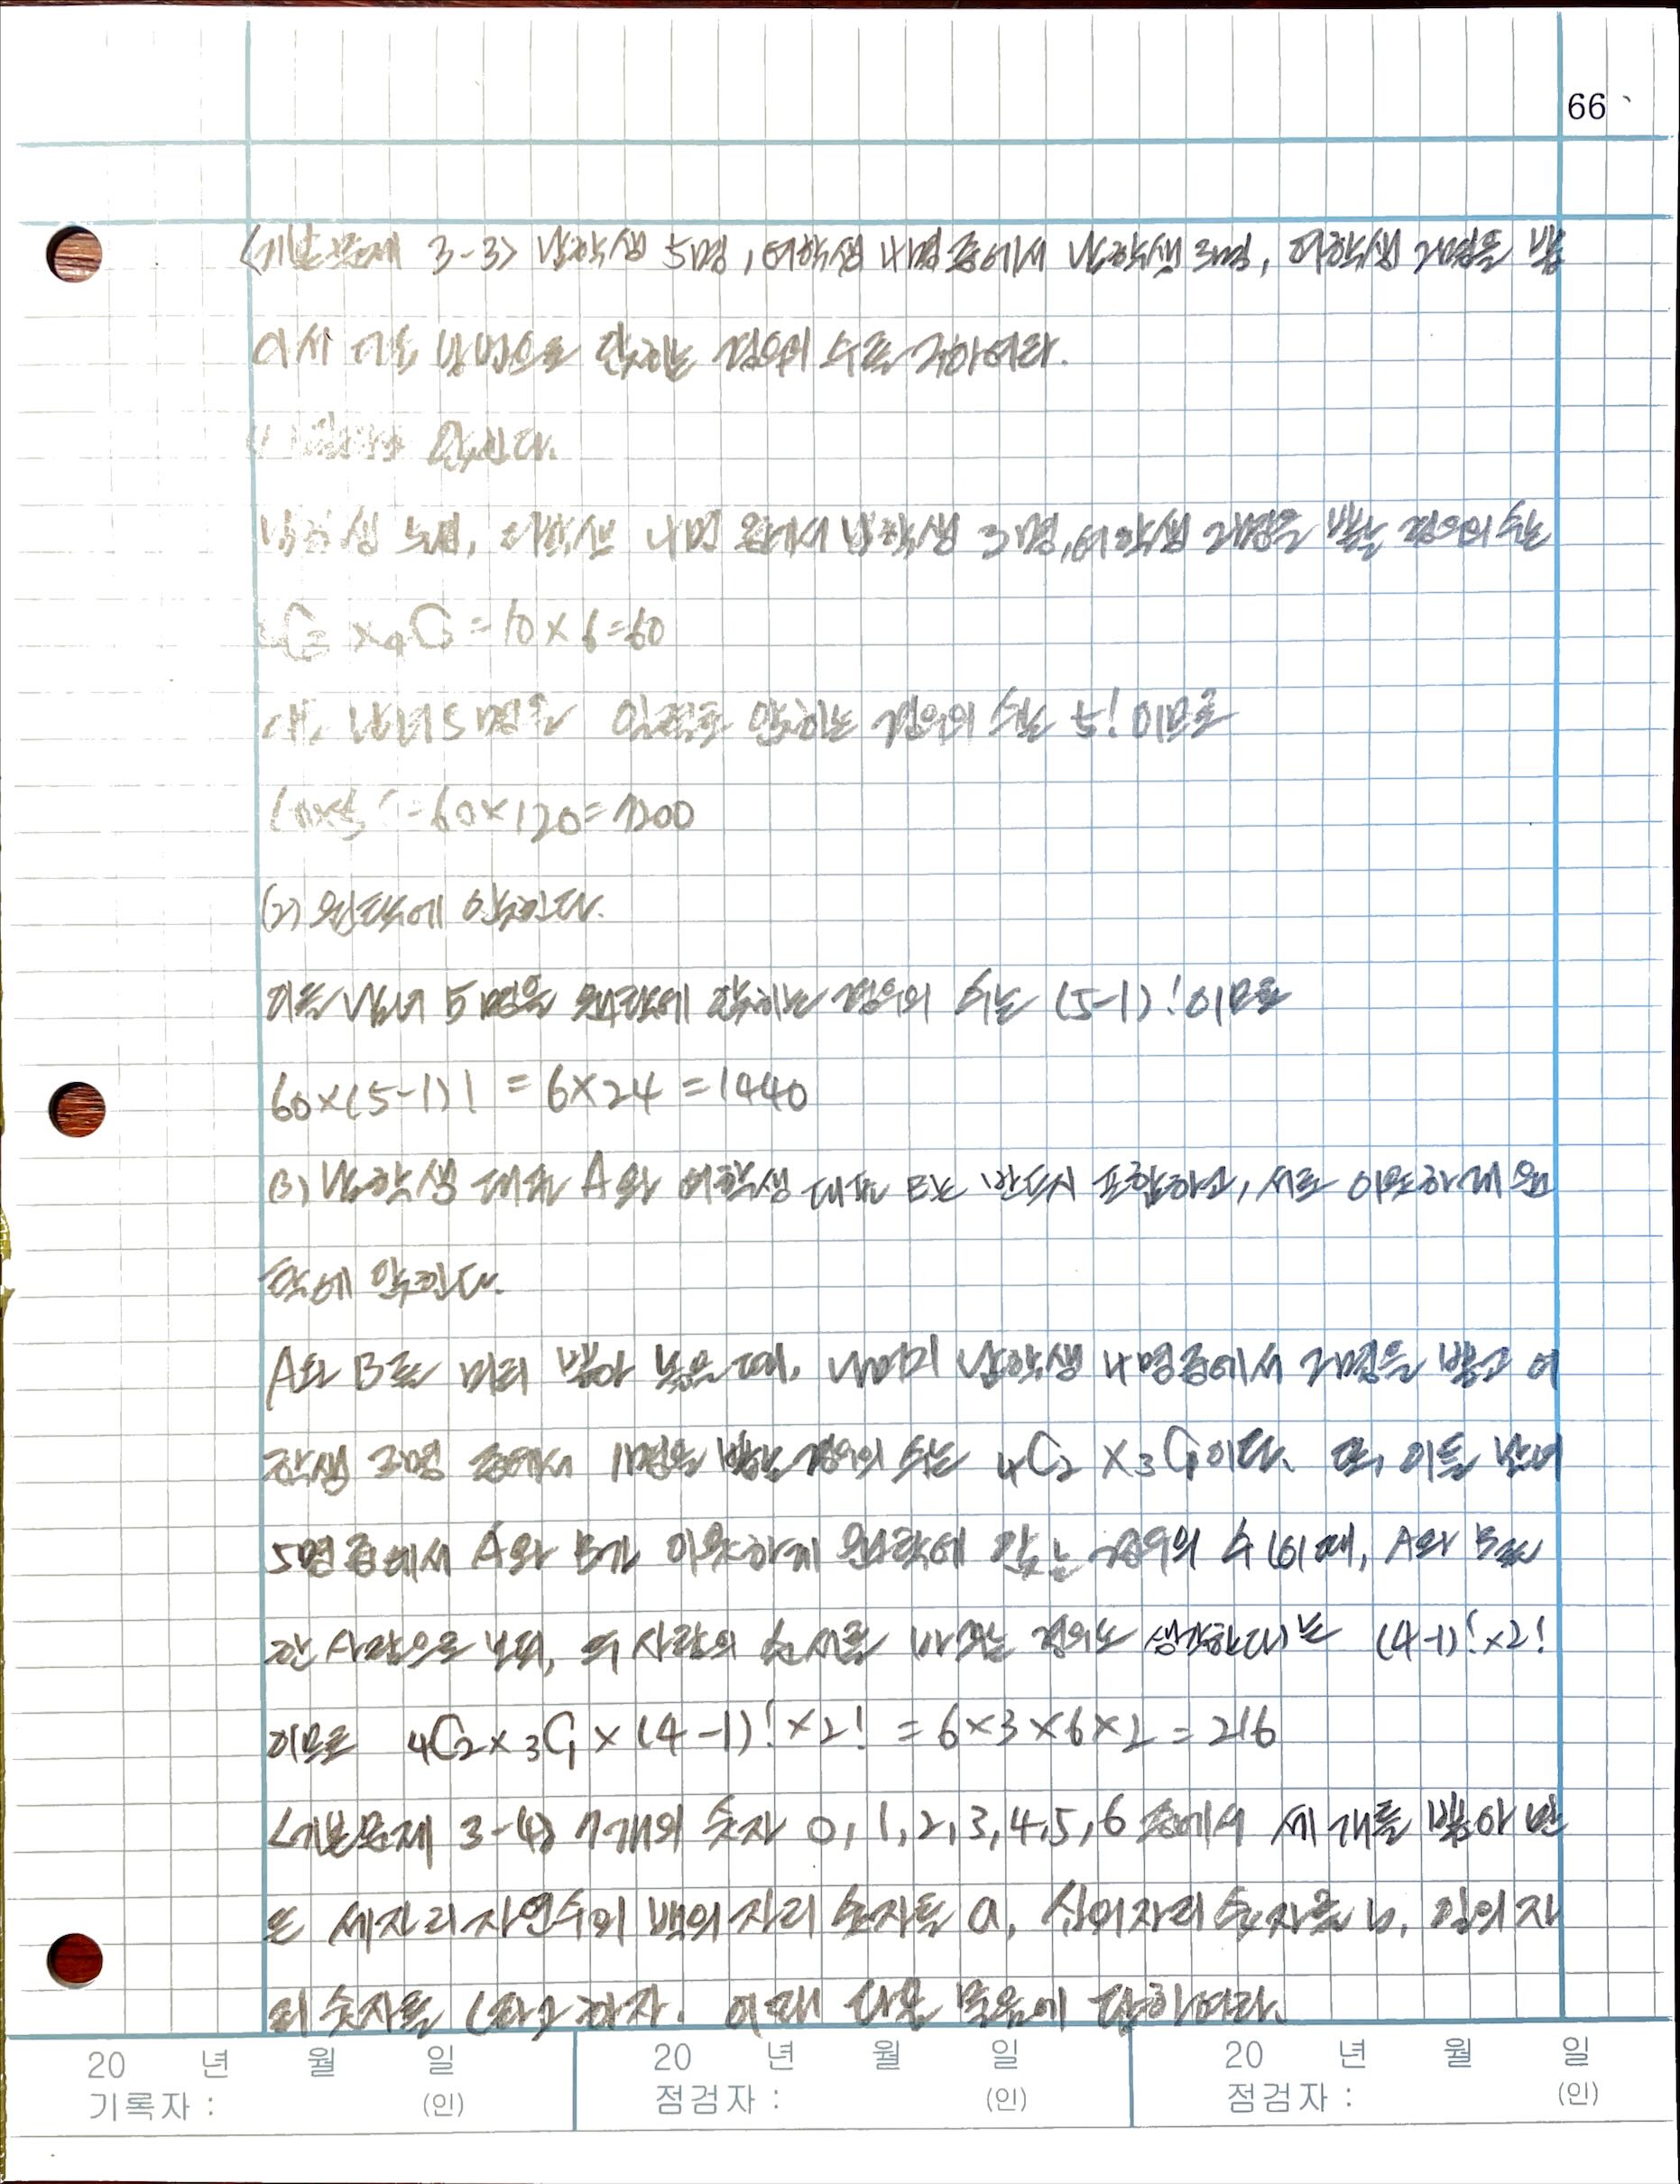 66
<기본문제 3-3> 남학생 5명, 여학생 4명 중에서 남학생 3명, 여학생 2명을 뽑
아서 다음 방법으로 앉히는 경우의 수를 구하여라.
앉힌다.
남학생 5명, 여학생 4명 중에서 남학생 3명, 여학생 2명을 뽑는 경우의 수는
= 10 × 6 = 60
남녀 5명을 일렬로 앉히는 경우의 수는 5! 이므로
= 60 × 120 = 7200
(2) 원탁에 앉힌다.
이들 남녀 5명을 원탁에 앉히는 경우의 수는 (5-1)! 이므로
60×(5-1)! = 6×24 = 1440
(3) 남학생 대표 A와 여학생 대표 B는 반드시 포함하고, 서로 이웃하게 원
탁에 앉힌다.
A와 B를 미리 뽑아 놓은 다음, 나머지 남학생 4명중에서 2명을 뽑고 여
학생 3명 중에서 1명을 뽑는 경우의 수는 ₄C₂ × ₃C₁이다. 또, 이들 남녀
5명 중에서 A와 B가 이웃하게 원탁에 앉는 경우의 수 (이때, A와 B를
한 사람으로 보되, 두 사람의 순서를 바꾸는 경우도 생각한다)는 (4-1)!×2!
이므로 ₄C₂×₃C₁×(4-1)!×2! = 6×3×6×2 = 216
<기본문제 3-4> 7개의 숫자 0, 1, 2, 3, 4, 5, 6 중에서 세 개를 뽑아 만
든 세자리 자연수의 백의 자리 숫자를 a, 십의 자리 숫자를 b, 일의 자
리 숫자를 c라고 하자. 이때 다음 물음에 답하여라.
20 년 월 일 20 년 월 일 20 년 월 일
기록자 : (인) 점검자 : (인) 점검자 : (인)